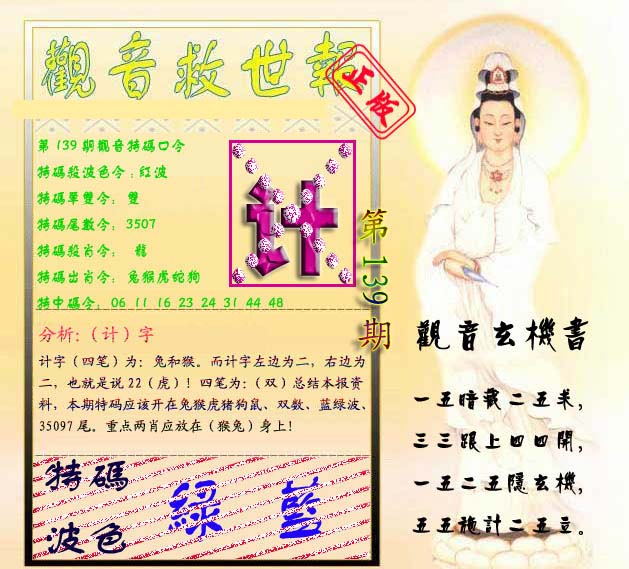 觀音救世報
正版
第139期觀音特碼口令
特碼殺波色令：紅波
特碼單雙令： 雙
特碼尾數令：3507
特碼殺肖令： 龍
特碼出肖令： 兔猴虎蛇狗
特中碼令：06 11 16 23 24 31 44 48
计
第139期
分析:（计）字
计字（四笔）为：兔和猴。而计字左边为二，右边为
二，也就是说22（虎）！四笔为：（双）总结本报资
料，本期特码应该开在兔猴虎猪狗鼠、双数、蓝绿波、
35097尾。重点两肖应放在（猴兔）身上！
特碼
波色
綠 藍
觀音玄機書
一五暗藏二五来，
三三跟上四四開，
一五二五隱玄機，
五五施計二五立。